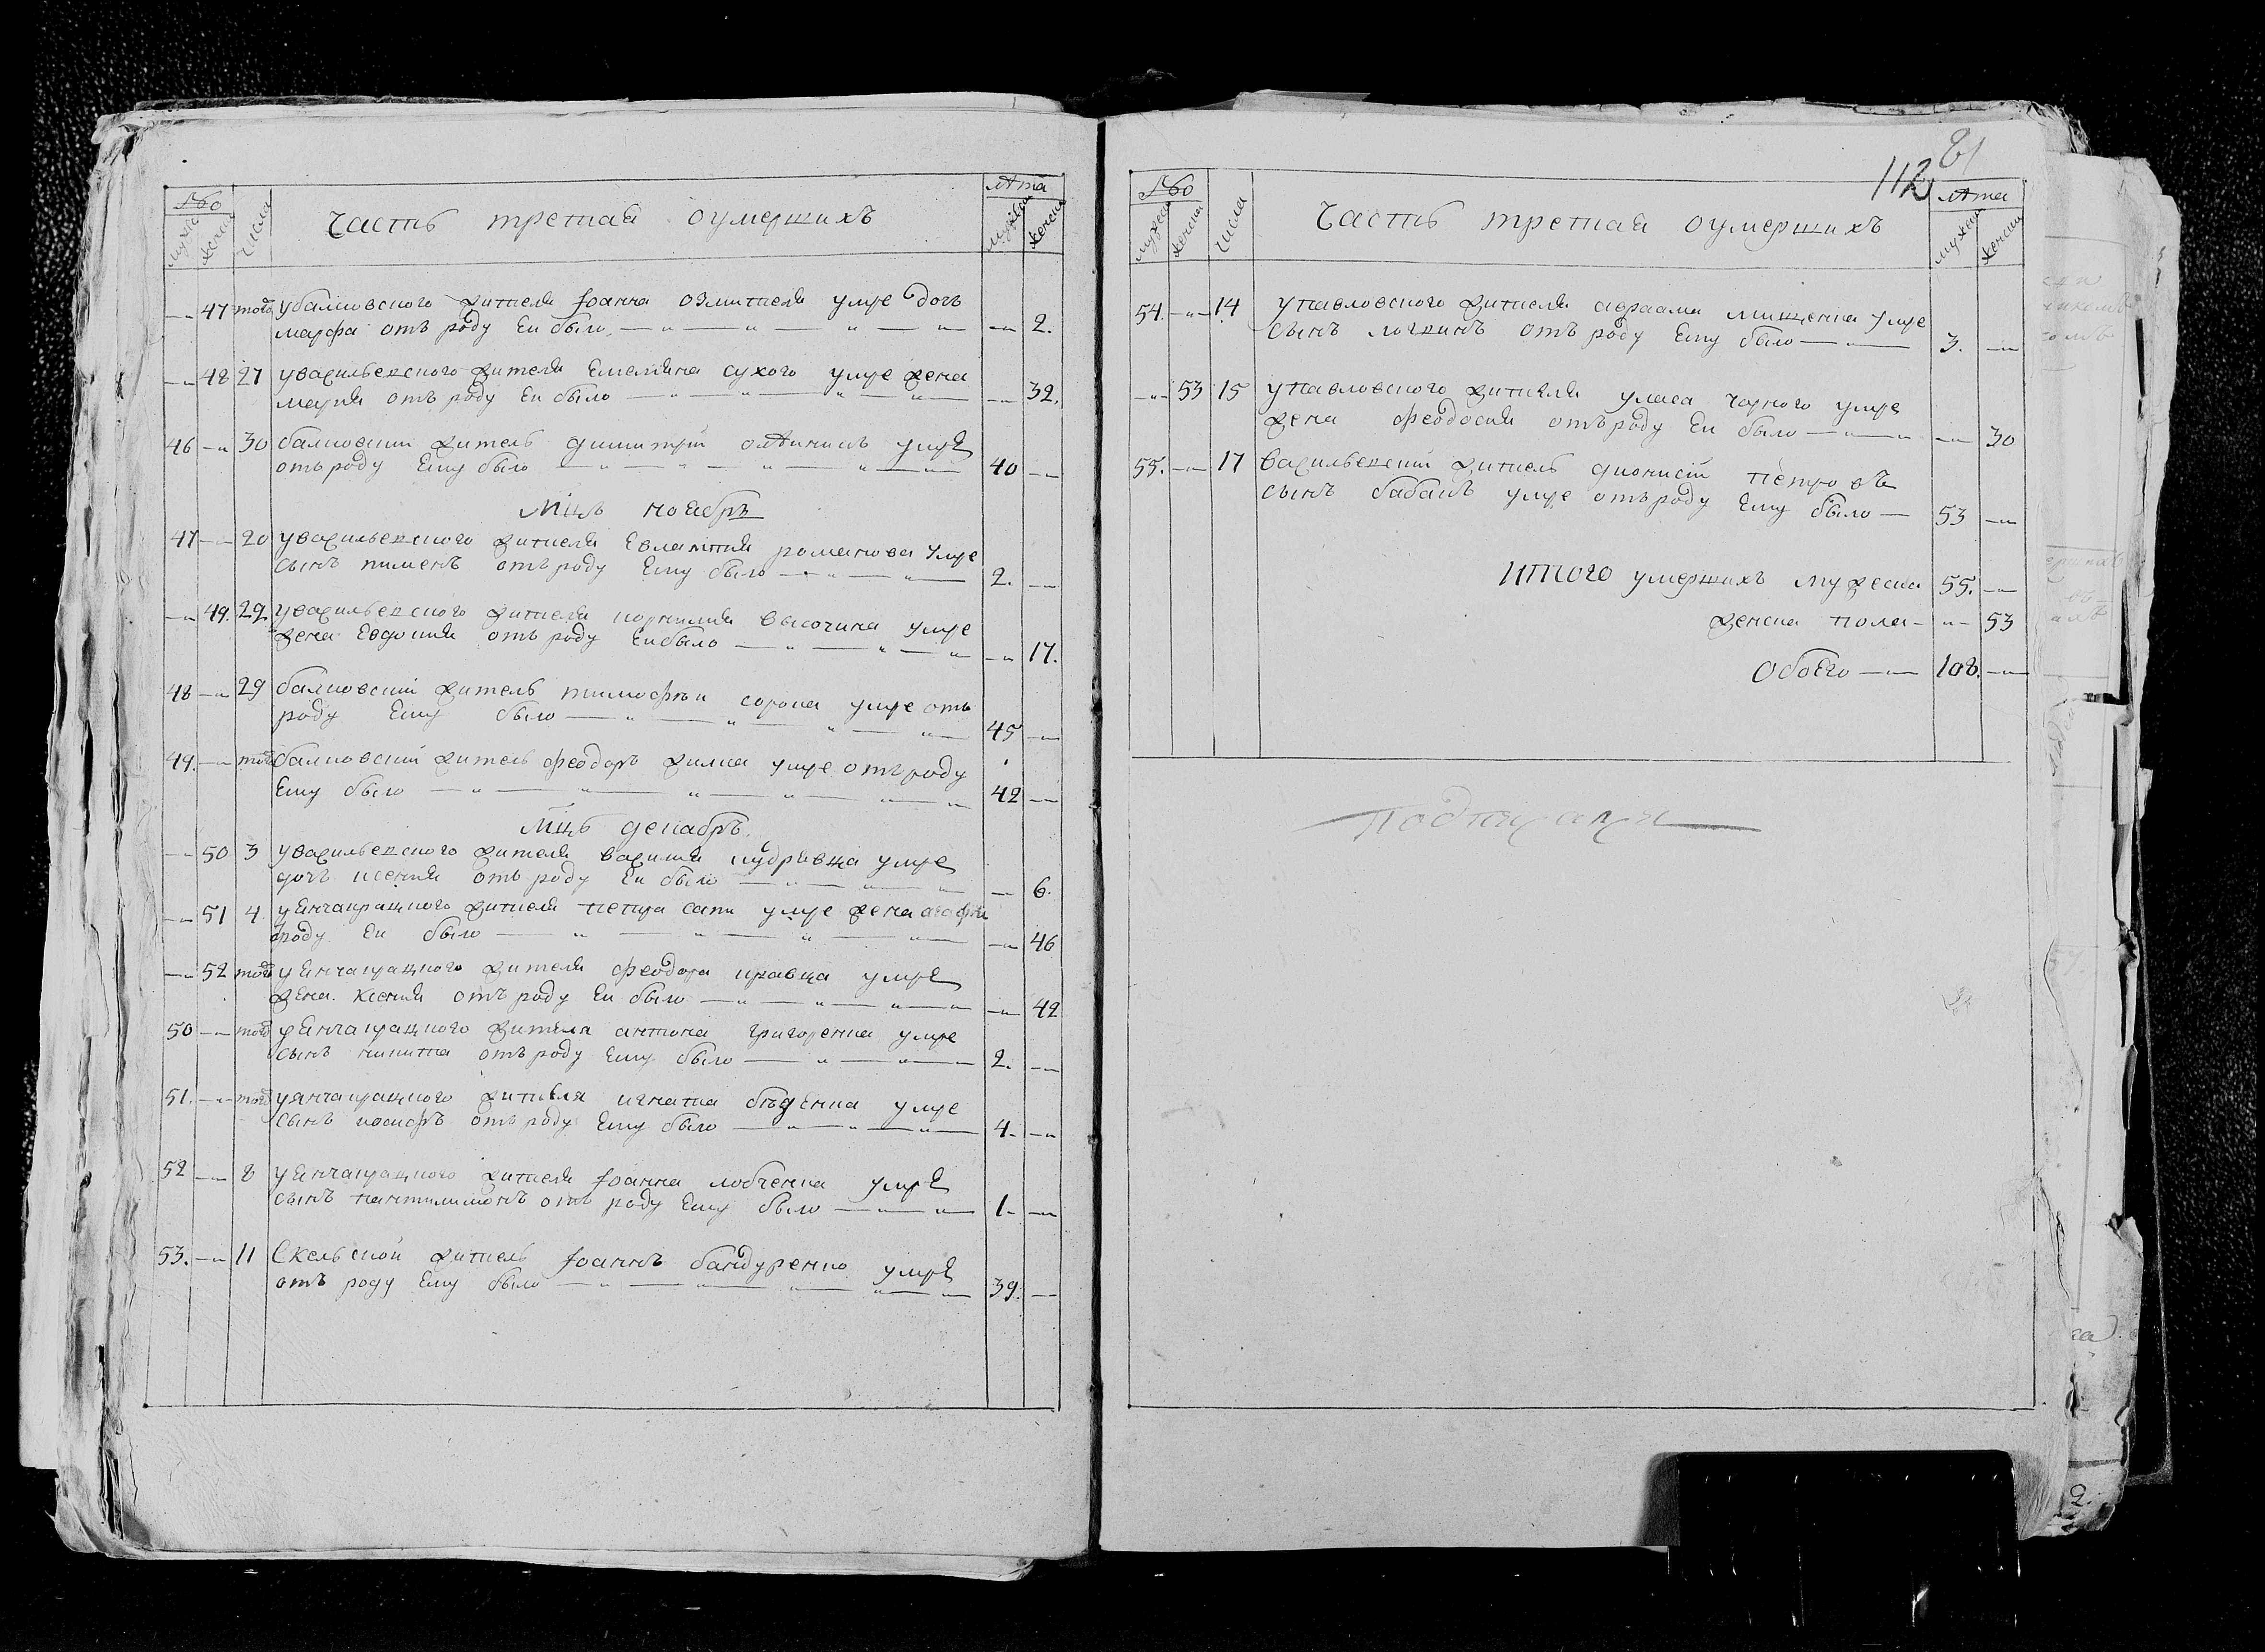 №
мужск женск числа
Часть третая оумершихъ
лѣта
мужск женск
— 47 того убалковского жителя Іоанна умре дочь
марфа отъ роду Еи было — — 2.
— 48 27 увасильевского жителя Емелияна сухого умре жена
мария отъ роду Еи было — — 32.
46 — 30 балковскии житель димитрій умре
отъ роду Ему было — 40 —
Мцъ ноябрь
47 — 20 увасильевского жителя Евлампия романова умре
сынъ пименъ отъ роду Ему было — 2. —
— 49. 29 увасильевского жителя корнилия височина умре
жена Евдокия отъ роду Еи было — — 17.
48 — 29 балковскій житель тимофѣи сорока умре отъ
роду Ему было — 45 —
49. — того балковскій житель феодоръ умре отъ роду
Ему было — 42 —
Мцъ декабрь.
— 50 3 увасильевского жителя василия кудрявца умре
дочь ксения отъ роду Еи было — — 6.
— 51 4 уянчакрацкого жителя петра умре жена агафия
роду Еи было — — 46
— 52 того уянчакрацкого жителя феодора кравца умре
жена. Ксения отъ роду Еи было — — 42
50 — того уянчакрацкого жителя антона григоренка умре
сынъ никита отъ роду Ему было — 2. —
51. — того уянчакрацкого жителя игната бѣденка умре
сынъ иосифъ отъ роду Ему было — 4. —
52 — 8 уянчакрацкого жителя Іоанна лобченка умре
сынъ пантилимонъ отъ роду Ему было — 1. —
53. — 11 Скельской житель Іоаннъ бандуренко умре
отъ роду Ему было — 39. —
112 81
№
мужск женск числа
Часть третая оумершихъ
лѣта
мужск женск
54. — 14 упавловского жителя авраама мищенка умре
сынъ логвинъ отъ роду Ему было — 3. —
— 53 15 упавловского жителя уласа чорного умре
жена феодосия отъ роду Еи было — — 30
55. — 17 васильевскій житель дионисій петровъ
сынъ бабакъ умре отъ роду Ему было — 53 —
Итого умершихъ мужеска 55. —
женска пола — — 53
Обоего — 108. —